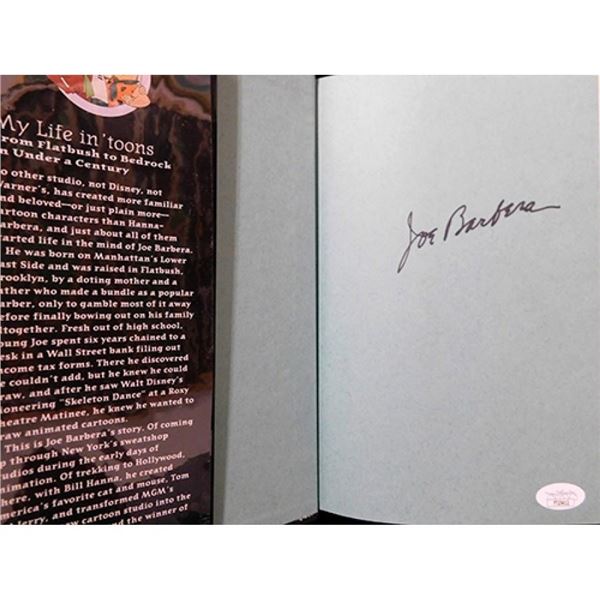 My Life in 'toons
From Flatbush to Bedrock
in Under a Century
o other studio, not Disney, not
arner's, has created more familiar
nd beloved—or just plain more—
artoon characters than Hanna-
arbera, and just about all of them
tarted life in the mind of Joe Barbera.
He was born on Manhattan's Lower
ast Side and was raised in Flatbush,
rooklyn, by a doting mother and a
ther who made a bundle as a popular
arber, only to gamble most of it away
efore finally bowing out on his family
ltogether. Fresh out of high school,
oung Joe spent six years chained to a
esk in a Wall Street bank filing out
ncome tax forms. There he discovered
e couldn't add, but he knew he could
raw, and after he saw Walt Disney's
ioneering "Skeleton Dance" at a Roxy
heatre Matinee, he knew he wanted to
raw animated cartoons.
This is Joe Barbera's story. Of coming
p through New York's sweatshop
tudios during the early days of
nimation. Of trekking to Hollywood,
here, with Bill Hanna, he created
merica's favorite cat and mouse, Tom
Jerry, and transformed MGM's
aw cartoon studio into the
and the winner of
Joe Barbera